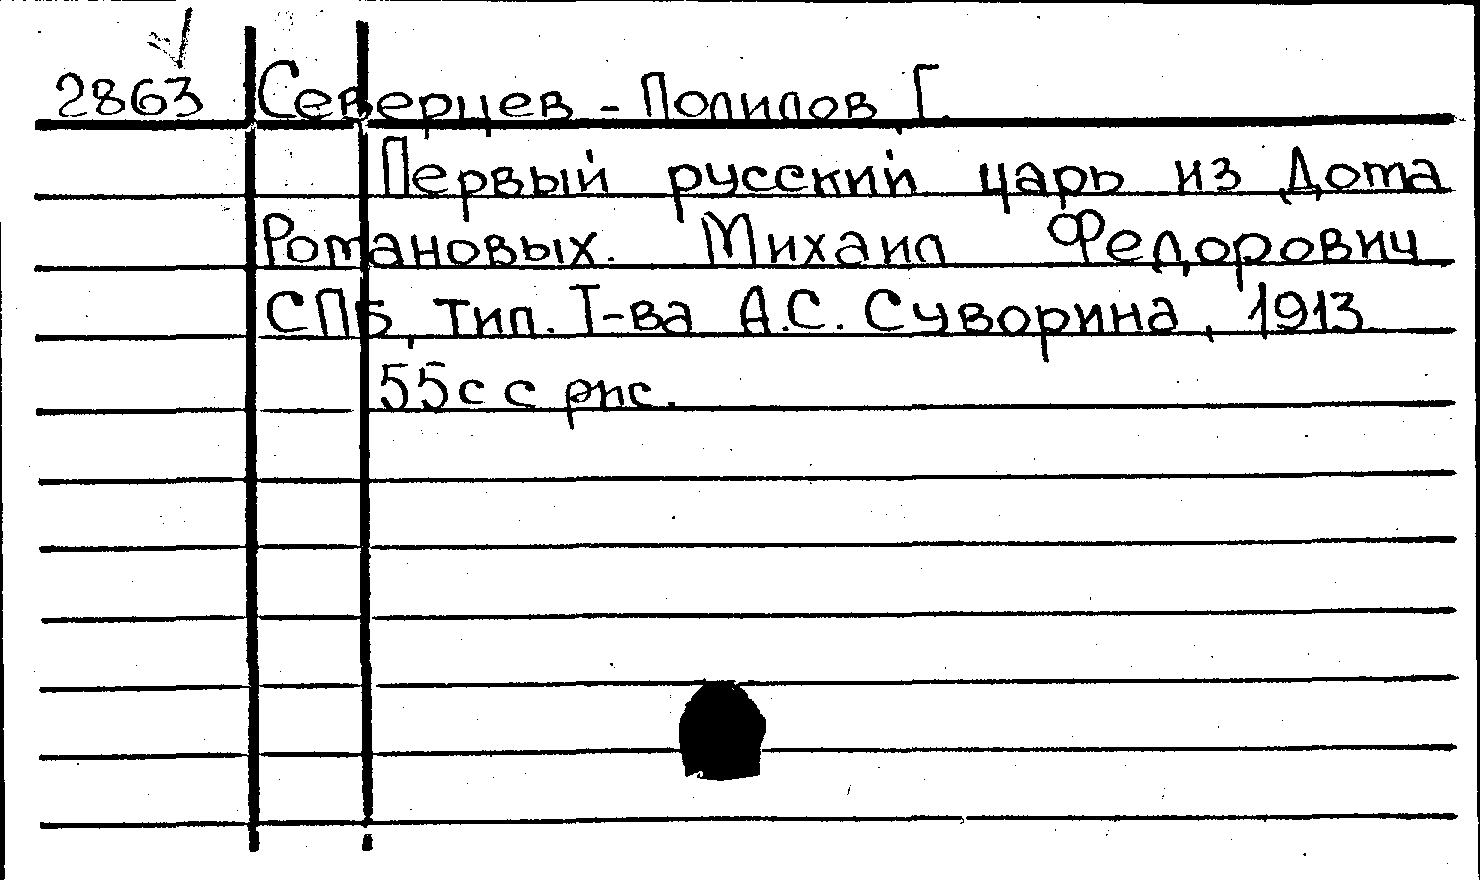 2863 Северцев - Полилов, Г.
Первый русский царь из Дома
Романовых. Михаил Федорович
СПБ, тип. Т-ва А.С. Суворина, 1913
55с с рис.